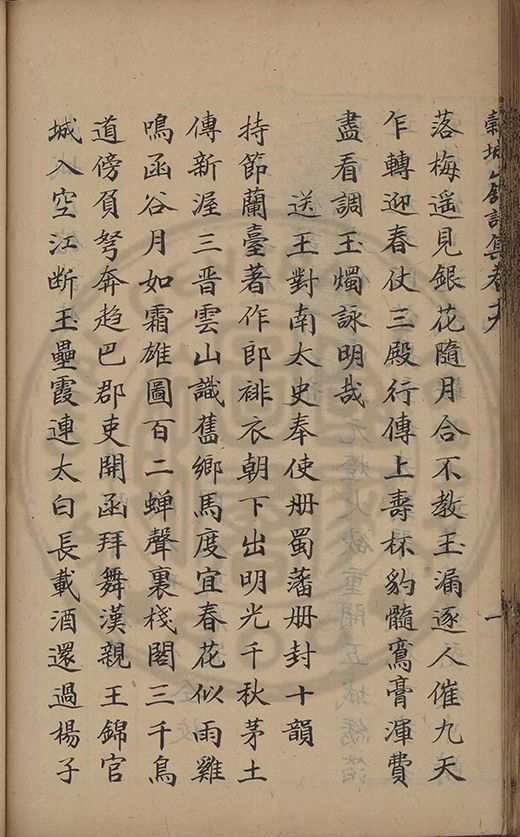 穀城山館詩集卷六
落梅遥見銀花隨月合不教玉漏逐人催九天
乍轉迎春仗三殿行傳上壽杯豹髓鸞膏渾費
盡看調玉燭詠明哉
送王對南太史奉使册蜀藩册封十韻
持節蘭臺著作郎褂衣朝下出明光千秋茅土
傳新渥三晉雲山識舊鄉馬度宜春花似雨雞
鳴函谷月如霜雄圖百二蝉聲裏棧閣三千鳥
道傍負弩奔趋巴郡吏開函拜舞漢親王錦官
城入空江断玉壘霞連太白長載酒還過楊子
一